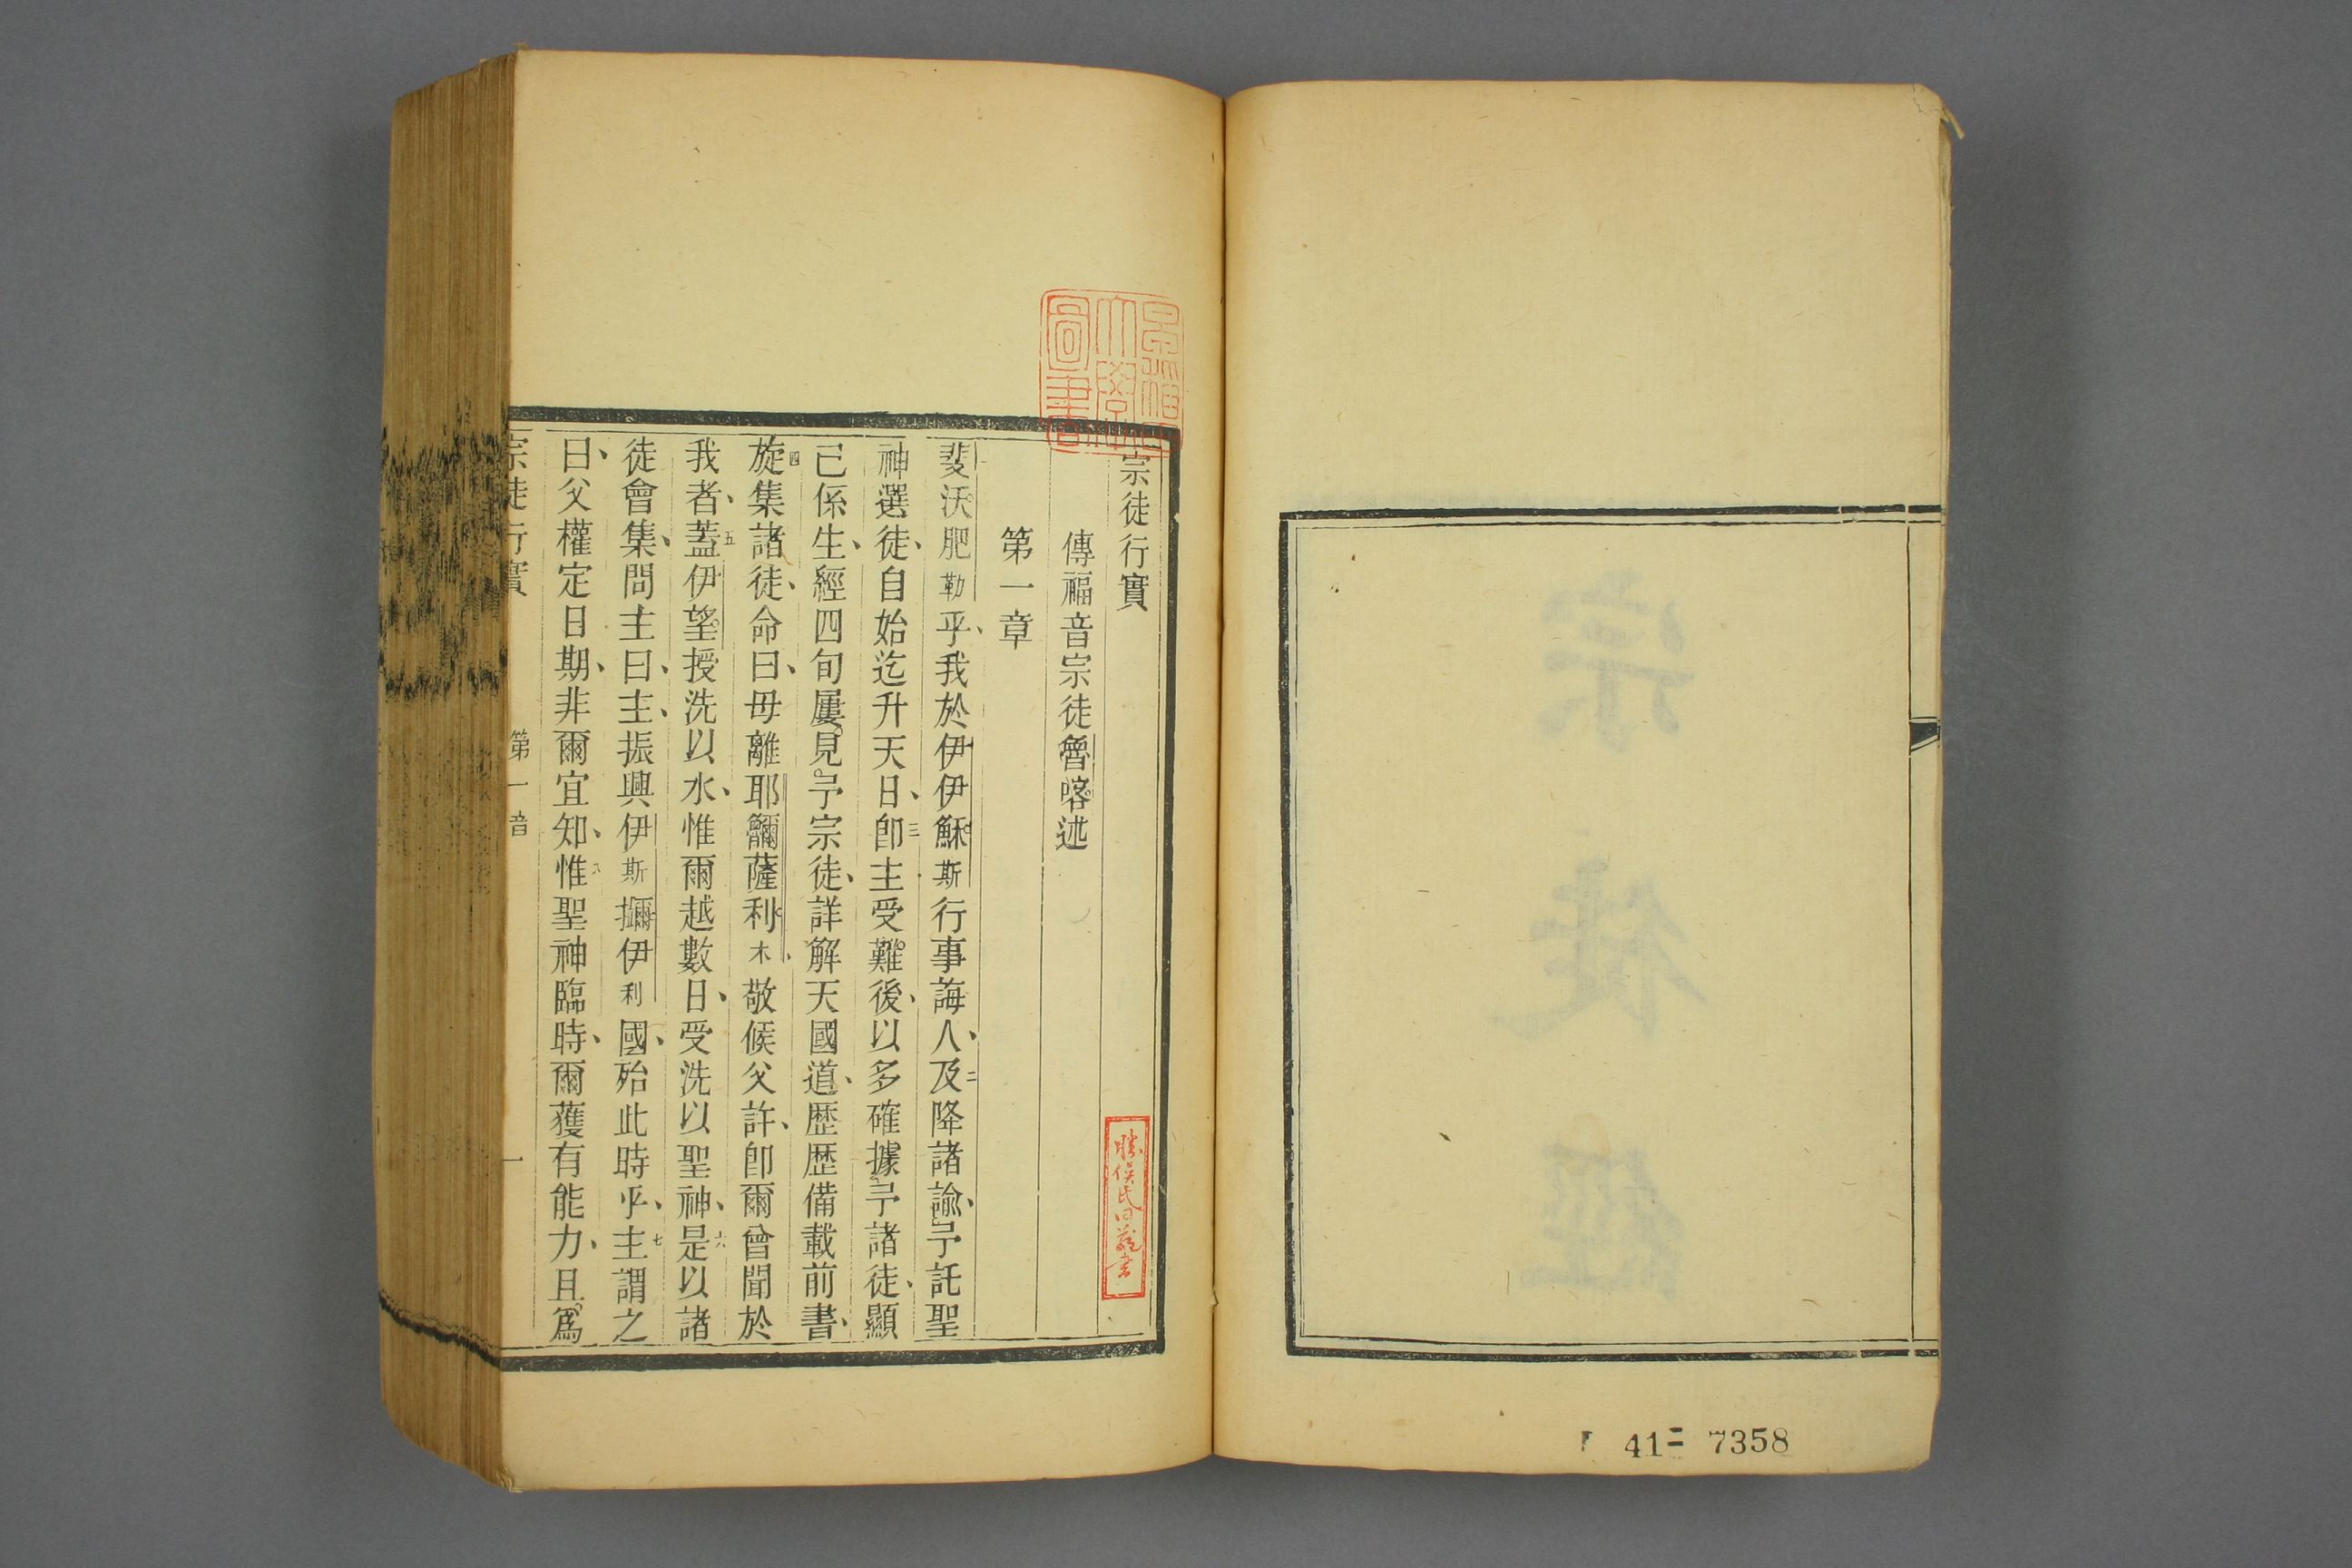 宗徒行實
傳福音宗徒魯喀述
第一章
斐沃肥勒乎、我於伊伊穌斯行事誨人、二及降諸諭、予託聖
神選徒、自始迄升天日、三卽主受難後、以多確據、予諸徒、顯
己係生、經四旬屢見予宗徒、詳解天國道、歷歷備載前書、
四旋集諸徒、命曰、毋離耶𬖠薩利木、敬候父許、卽爾曾聞於
我者、五蓋伊望授洗以水、惟爾越數日、受洗以聖神、六是以諸
徒會集、問主曰、主、振興伊斯擟伊利國、殆此時乎、七主謂之
曰、父權定日期、非爾宜知、八惟聖神臨時、爾獲有能力、且爲
宗徒行實 第一章 一
早稻田大學圖書
勝俣氏旧蔵書
宗徒經
41 7358